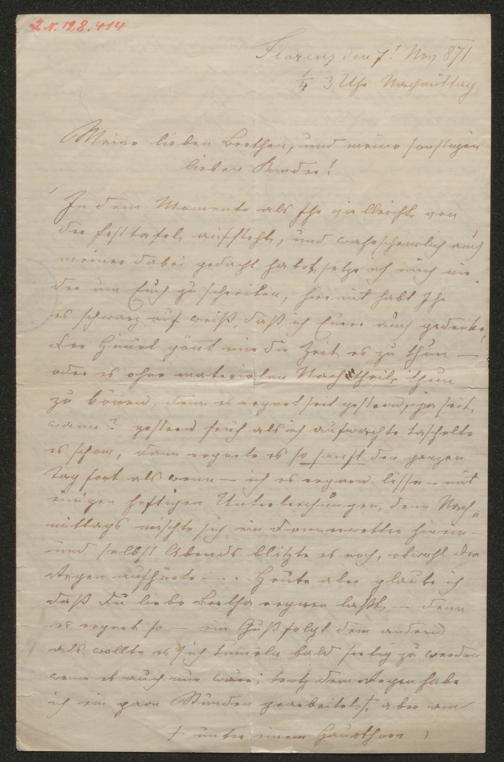 I. N. 128.414
Florenz den 7t Nov 871
1/4 3 Uhr Nachmittag
Meine lieben Berthen, und meine sonstigen
lieben Kinder!
In dem Momente als Ihr vielleicht von
der Festtafel aufsteht, und wahrscheinlich auch
meiner dabei gedacht habt, setze ich mich nie
der um Euch zu schreiben, hiermit habt Ihr
es schwarz auf weiß, daß ich Eurer auch gedenke,
Der Himmel gönnt mir die Zeit es zu thun —
oder es ohne materiellen Nachtheil, thun
zu können, denn es regnet seit gestern, ja seit,
wann? gestern früh als ich aufwachte tröpfelte
es schon, dann regnete es so sanft den ganzen
Tag fort als wenn — ich es regnen lasse — mit
einigen heftigen Unterbrechungen, dem Nach„
mittags mischte sich ein Donnerwetter hinein —
und selbst Abends blitzte es noch, obwohl der
Regen aufhörte —. Heute aber glaube ich
daß Du liebe Bertha regnen laßt, — denn
es regnet so — ein Guß folgt dem andern
als wollte es sich tummeln bald fertig zu werden
wenn es auch nur wäre; trotz dem Regen habe
ich ein paar Stunden gearbeitet, † aber am
† unter einem Hausthore )